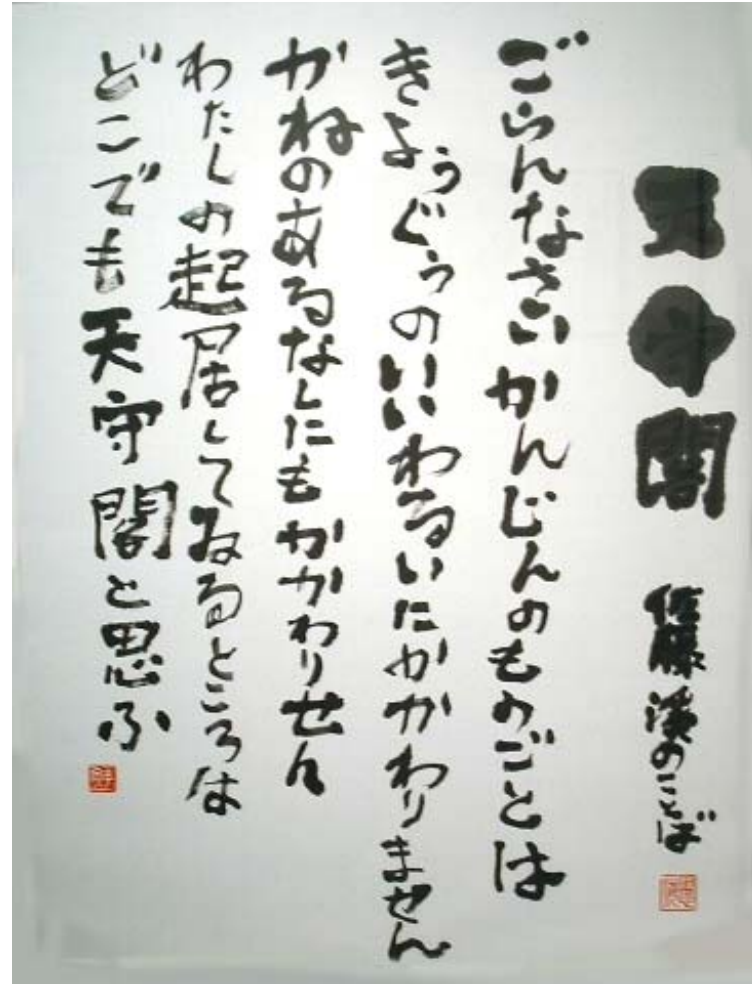 天守閣 佐藤溪のことば
ごらんなさいかんじんのものごとは
きょうぐうのいいわるいにかかわりません
かねのあるなしにもかかわりせん
わたしの起居してゐるところは
どこでも天守閣と思ふ